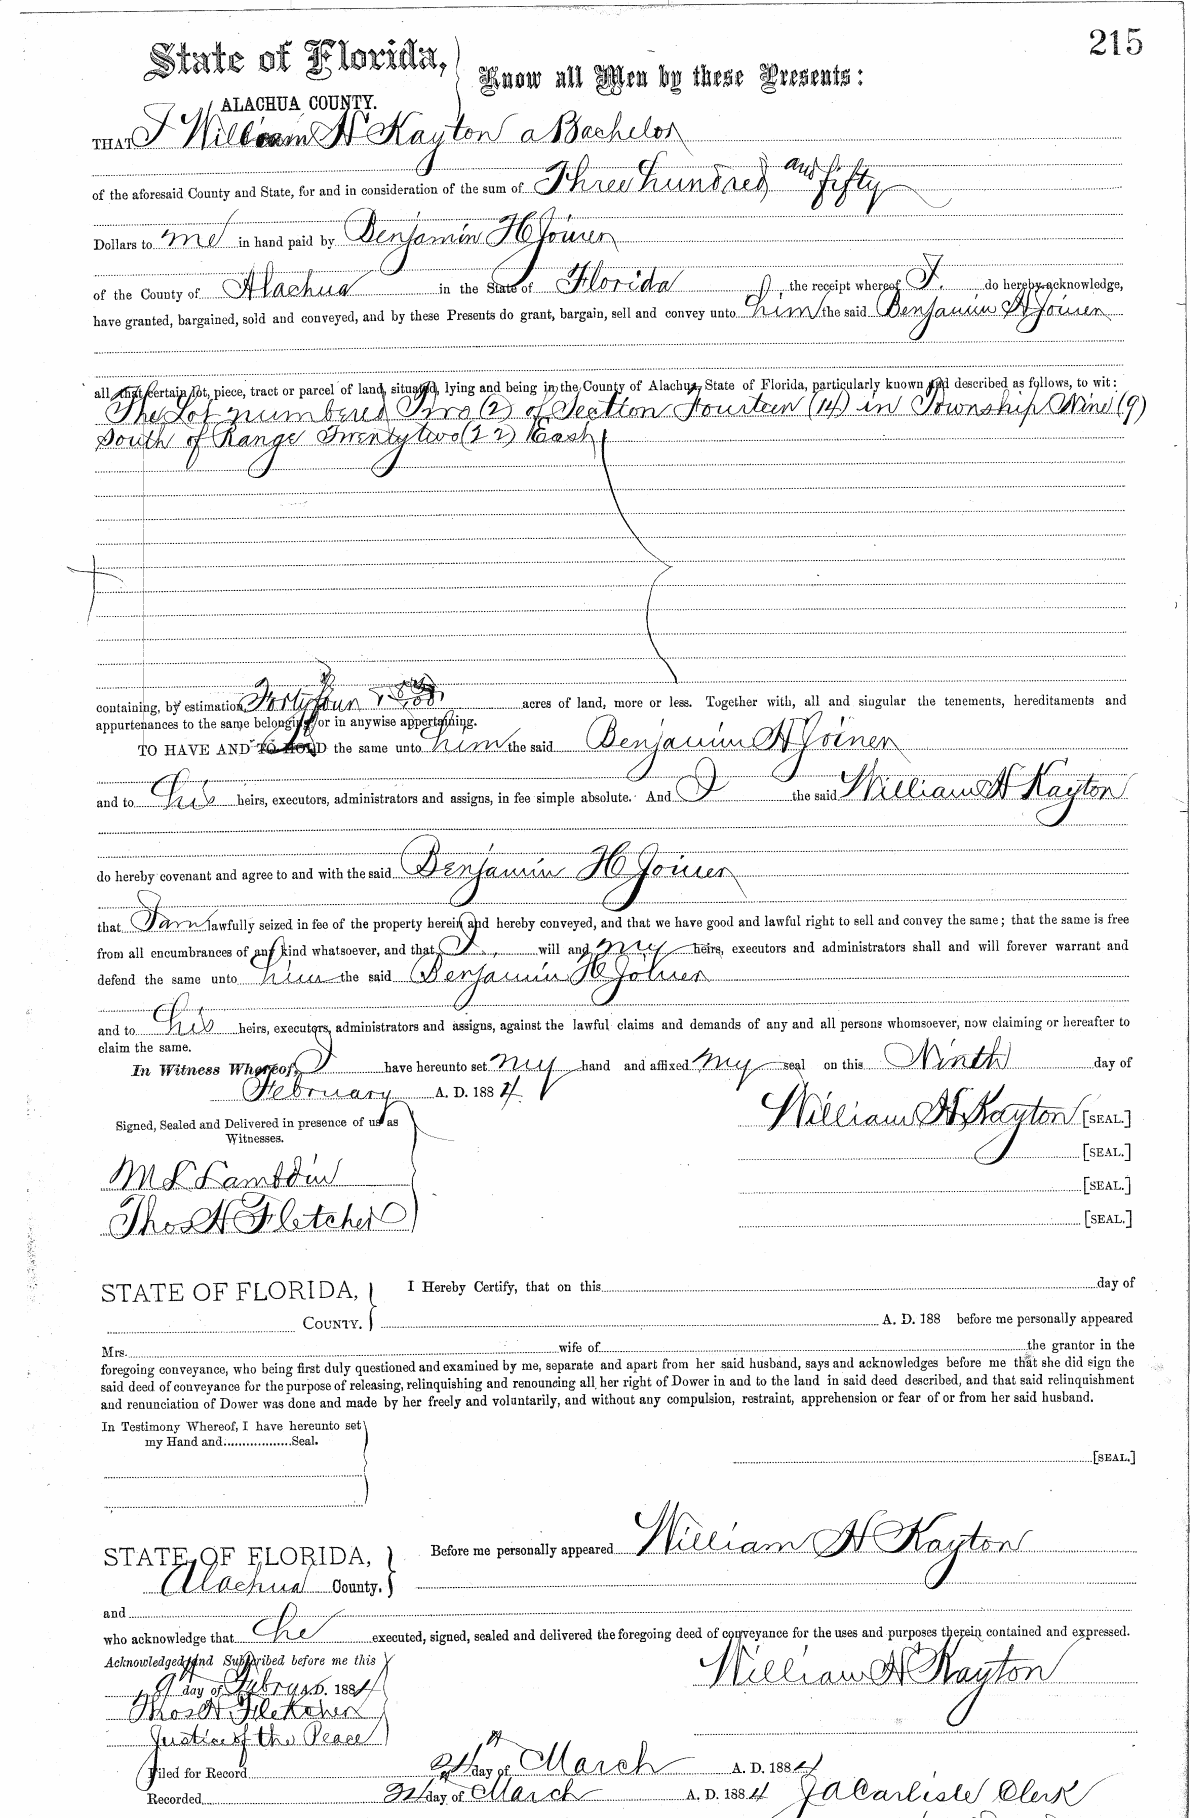 215
State of Florida, Know all Men by these Presents:
ALACHUA COUNTY.
THAT I William H Kayton a Bachelor
of the aforesaid County and State, for and in consideration of the sum of Three hundred and fifty
Dollars to me in hand paid by Benjamin H Joiner
of the County of Alachua in the State of Florida the receipt whereof I do hereby acknowledge,
have granted, bargained, sold and conveyed, and by these Presents do grant, bargain, sell and convey unto him the said Benjamin H Joiner
all that certain lot, piece, tract or parcel of land, situated, lying and being in the County of Alachua, State of Florida, particularly known and described as follows, to wit:
The Lot numbered Two (2) of Section Fourteen (14) in Township Nine (9)
South of Range Twentytwo (22) East
containing, by estimation, Forty four acres of land, more or less. Together with, all and singular the tenements, hereditaments and
appurtenances to the same belonging or in anywise appertaining.
TO HAVE AND TO HOLD the same unto him the said Benjamin H Joiner
and to his heirs, executors, administrators and assigns, in fee simple absolute. And I the said William H Kayton
do hereby covenant and agree to and with the said Benjamin H Joiner
that I am lawfully seized in fee of the property herein and hereby conveyed, and that we have good and lawful right to sell and convey the same; that the same is free
from all encumbrances of any kind whatsoever, and that I will and my heirs, executors and administrators shall and will forever warrant and
defend the same unto him the said Benjamin H Joiner
and to his heirs, executors, administrators and assigns, against the lawful claims and demands of any and all persons whomsoever, now claiming or hereafter to
claim the same.
In Witness Whereof, I have hereunto set my hand and affixed my seal on this Ninth day of
February A. D. 1884.
Signed, Sealed and Delivered in presence of us as
Witnesses.
William H Kayton [SEAL.]
[SEAL.]
M L Lambdin [SEAL.]
Thos H Fletcher [SEAL.]
STATE OF FLORIDA, I Hereby Certify, that on this day of
COUNTY. A. D. 188 before me personally appeared
Mrs. wife of the grantor in the
foregoing conveyance, who being first duly questioned and examined by me, separate and apart from her said husband, says and acknowledges before me that she did sign the
said deed of conveyance for the purpose of releasing, relinquishing and renouncing all her right of Dower in and to the land in said deed described, and that said relinquishment
and renunciation of Dower was done and made by her freely and voluntarily, and without any compulsion, restraint, apprehension or fear of or from her said husband.
In Testimony Whereof, I have hereunto set
my Hand and Seal.
[SEAL.]
STATE OF FLORIDA, Before me personally appeared William H Kayton
Alachua County.
and
who acknowledge that he executed, signed, sealed and delivered the foregoing deed of conveyance for the uses and purposes therein contained and expressed.
Acknowledged and Subscribed before me this William H Kayton
9th day of A.D. 1884
Thos H Fletcher
Justice of the Peace
Filed for Record 24th day of March A. D. 1884
Recorded day of March A. D. 1884 J A Carlisle Clerk